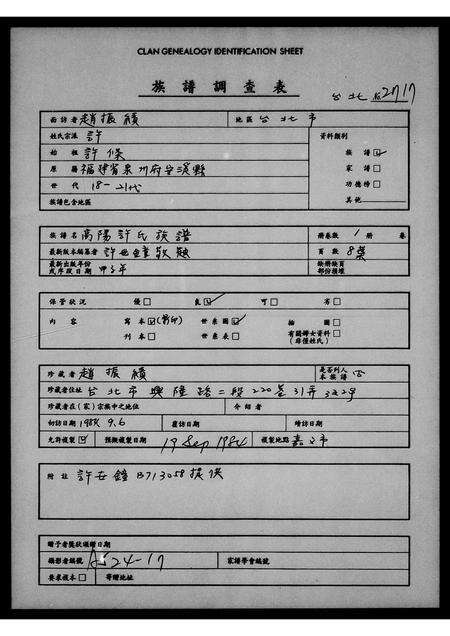 CLAN GENEALOGY IDENTIFICATION SHEET
族譜調查表
台北 2717
面訪者 趙振績 地區 台北市
姓氏宗派 許 資料類別
始祖 許條 族譜☑
原籍 福建省泉州府安溪縣 家譜□
世代 18-21代 功德榜□
族譜包含地區 其他
族譜名 高陽許氏族譜 冊卷數 1 冊 卷
最新版本編纂者 頁數 8葉
最新出版年份或序改日期 甲子年 缺冊缺頁部份損壞
保管狀況 優□ 良☑ 可□ 劣□
內容 寫本☑(影印) 世系圖☑ 插圖□
刊本□ 世系表□ 有關婦女資料□(非僅姓氏)
珍藏者 趙振績 是否列入本族譜 否
珍藏者住址 台北市興隆路二段220巷31弄3號
珍藏者在(家)宗族中之地位 介紹者
初訪日期 1984. 9.6 覆訪日期 轉訪日期
允許複製☑ 預擬複製日期 19 Sep 1984 複製地點 嘉義市
附註 許世鐘 B713058提供
贈予者獎狀頒贈日期
攝影者編號 A524-17 家譜學會編號
要求複本□ 寄贈地址